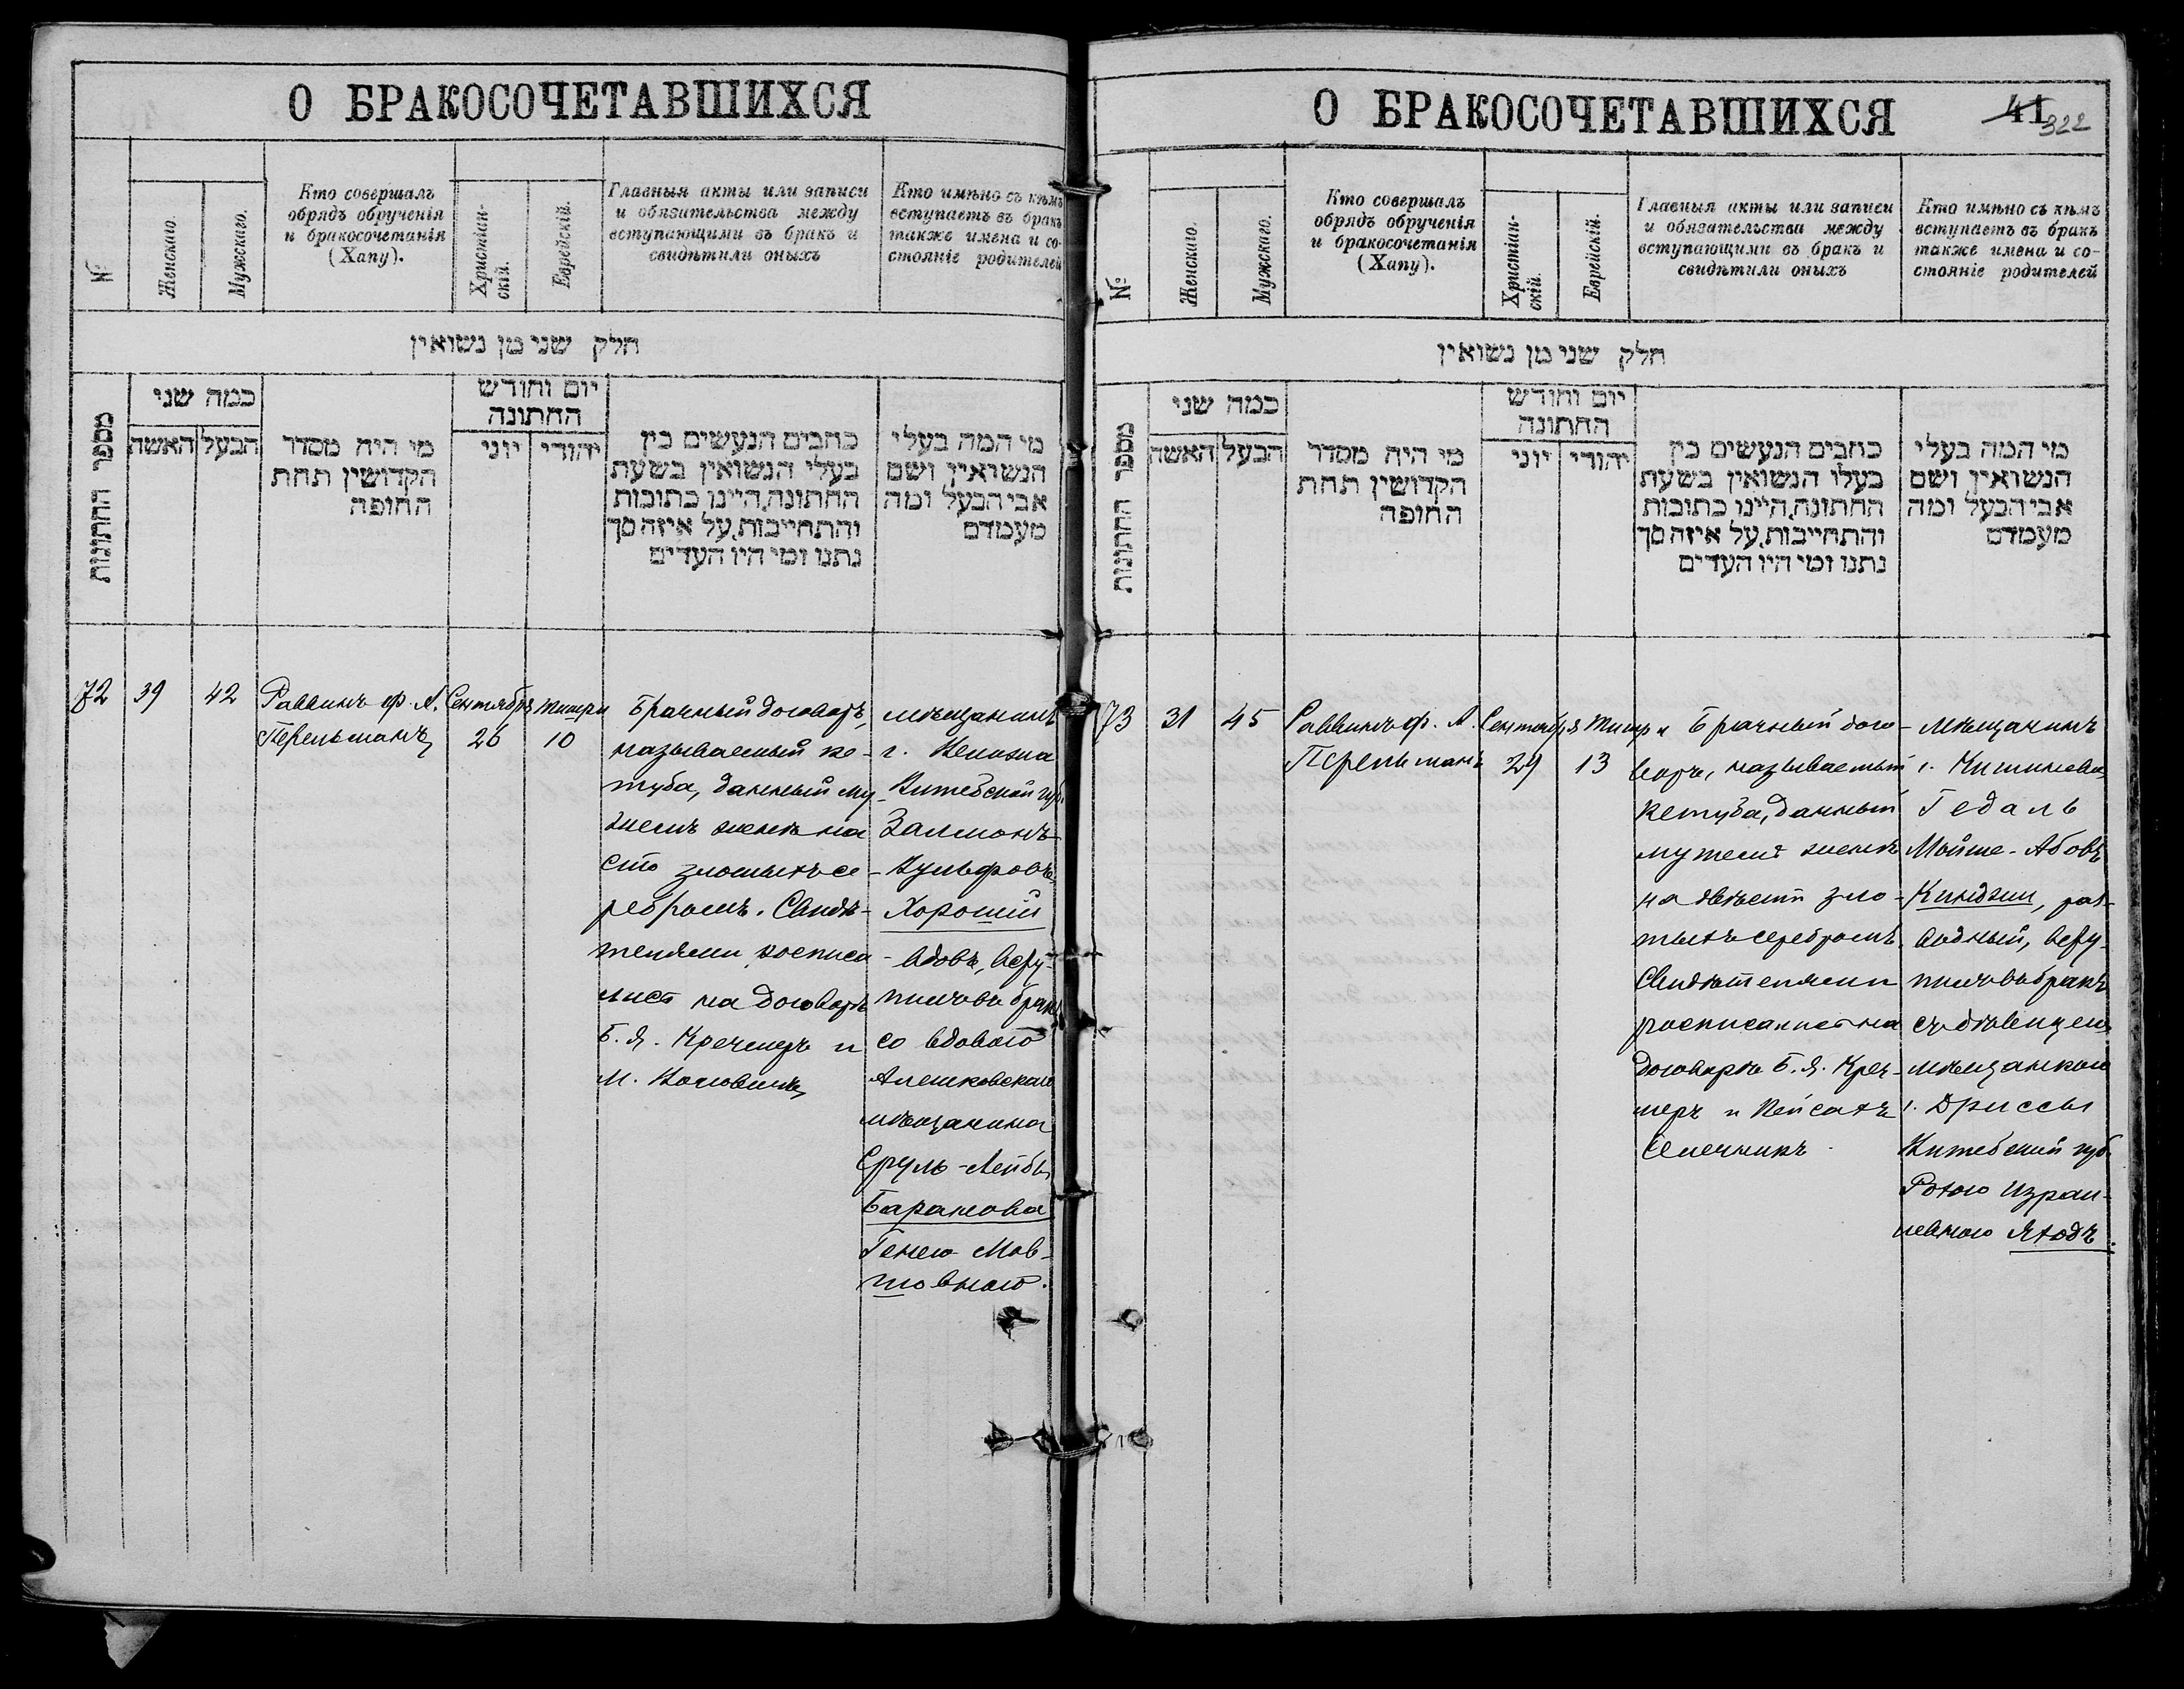 О БРАКОСОЧЕТАВШИХСЯ
№
Женскаго.
Мужскаго.
Кто совершалъ
обрядъ обрученія
и бракосочетанія
(Хапу).
Христіан-
скій.
Еврейскій.
Главныя акты или записи
и обязательства между
вступающими въ бракъ и
свидѣтили оныхъ
Кто имѣно съ кѣмъ
вступаетъ въ бракъ
также имена и со-
стояніе родителей
חלק שני מן נשואין
מספר החתונות
כמה שני
האשה
הבעל
מי היה מסדר
הקדושין תחת
החופה
יום וחודש
החתונה
יוני
יהודי
כתבים הנעשים בין
בעלי הנשואין בשעת
החתונה,היינו כתובות
והתחייבות,על איזה סך
נתנו ומי היו העדים
מי המה בעלי
הנשואין ושם
אבי הבעל ומה
מעמדם
72
39
42
Раввинъ ф. А.
Перельманъ
Сентября
26
Тишри
10
Брачный договоръ,
называемый ке-
туба, данный му-
жемъ женѣ на
сто злотыхъ се-
ребромъ. Свидѣ-
телями росписа-
лись на договорѣ
Б. Я. Кречмеръ и
М.
мѣщанинъ
г. Велижа
Витебской губ.
Залмонъ
Вульфовъ
Хороший
вдовъ, всту-
пилъ въ бракъ
со вдовою
Алешковскаго
мѣщанина
Сруль-Лейбы
Баранова
Генею Мов-
шовною.
О БРАКОСОЧЕТАВШИХСЯ
41
322
№
Женскаго.
Мужскаго.
Кто совершалъ
обрядъ обрученія
и бракосочетанія
(Хапу).
Христіан-
скій.
Еврейскій.
Главныя акты или записи
и обязательства между
вступающими въ бракъ и
свидѣтили оныхъ
Кто имѣно съ кѣмъ
вступаетъ въ бракъ
также имена и со-
стояніе родителей
חלק שני מן נשואין
מספר החתונות
כמה שני
האשה
הבעל
מי היה מסדר
הקדושין תחת
החופה
יום וחודש
החתונה
יוני
יהודי
כתבים הנעשים בין
בעלי הנשואין בשעת
החתונה,היינו כתובות
והתחייבות,על איזה סך
נתנו ומי היו העדים
מי המה בעלי
הנשואין ושם
אבי הבעל ומה
מעמדם
73
31
45
Раввинъ ф. А.
Перельманъ
Сентября
29
Тишри
13
Брачный дого-
воръ, называемый
кетуба, данный
мужемъ женѣ
на двѣсти зло-
тыхъ серебромъ.
Свидѣтелями
росписались на
договорѣ Б. Я. Креч-
меръ и Пейсахъ
Семечникъ
мѣщанинъ
г. Кишинева
Гедаль
Мойше-Абовъ
Киндзин, раз-
водный, всту-
пилъ въ бракъ
съ дѣвицею
мѣщанкою
г. Дриссы
Витебской губ.
Рохою Израи-
левною